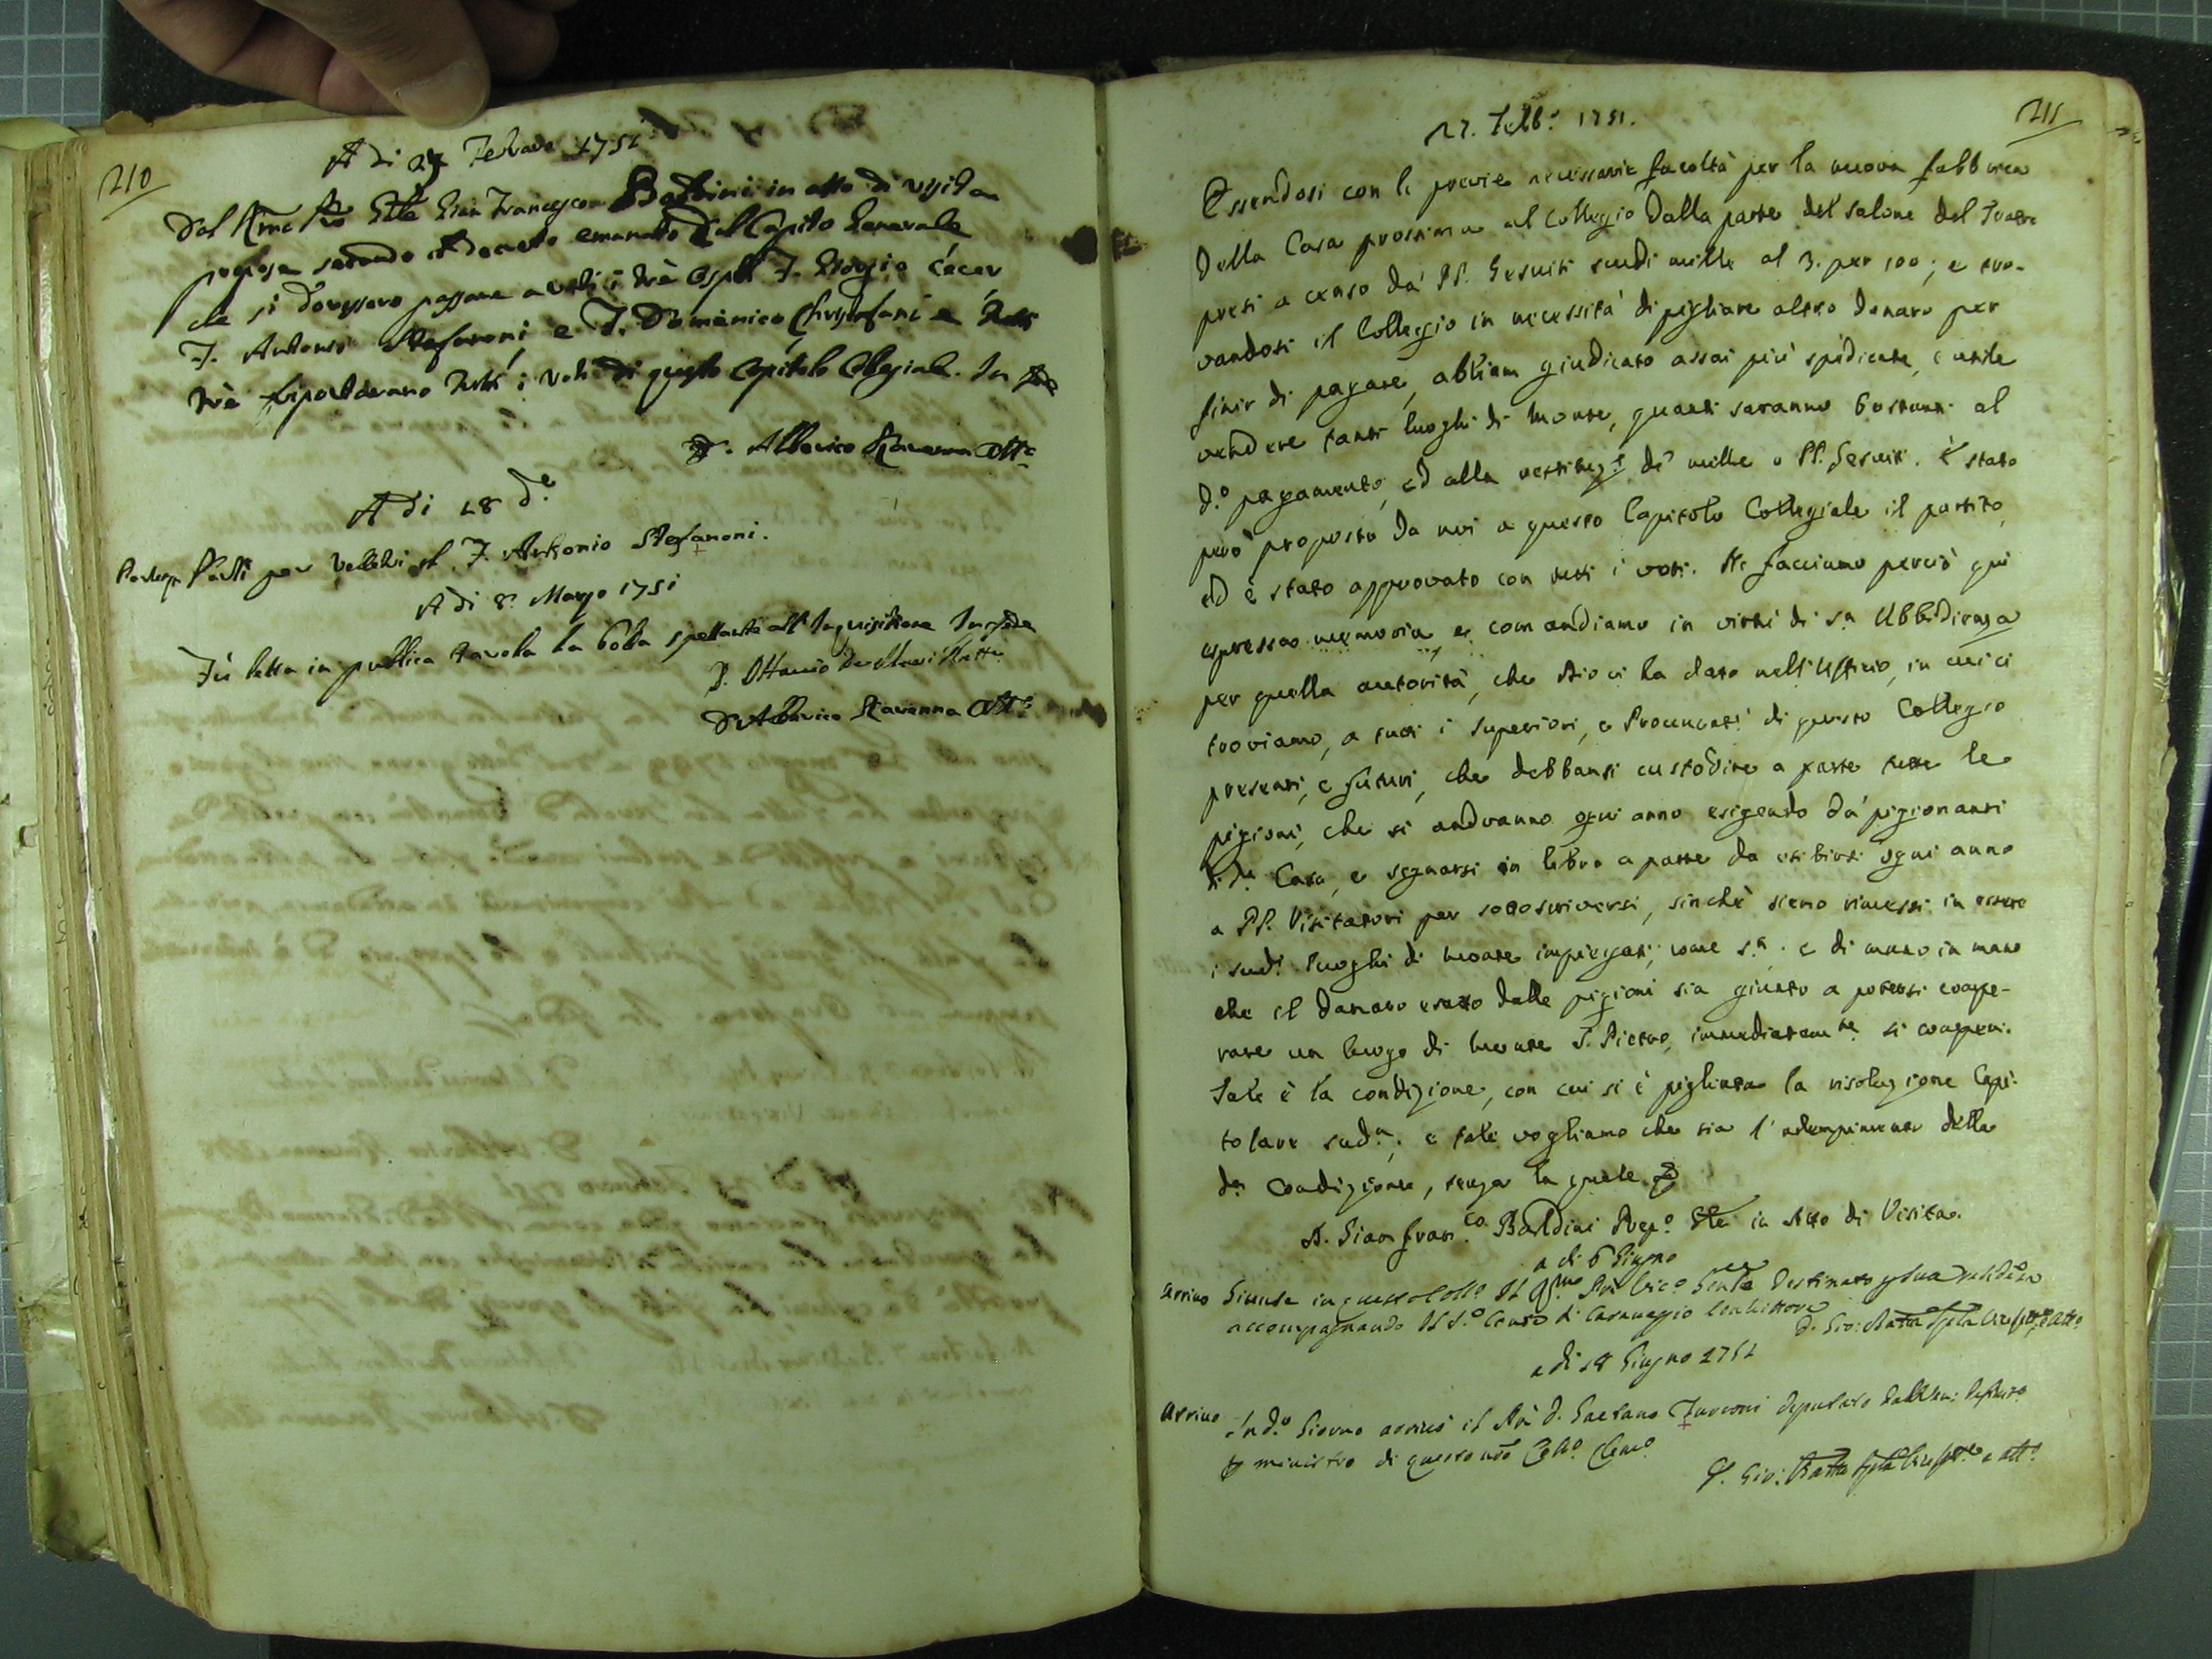 210
A di 27 Febraro 1751
Dal Rmo Pre Gnle Gian Francesco Baldinii in atto di visita
proposa secondo il decreto emanato dal Capito Generale
che si dovessero passare a voti i trè ospiti F. Giorgio
F. Antonio Stefanoni, e F. Domenico e tutti
trè riportarano tutti i voti di questo Capitolo Collegiale. In fede
D. Alberico Ravenna Atto
A di 28 do
Partenza Partì per Velletri il F. Antonio Stefanoni.
A di 8. Marzo 1751
Fù letta in publica tavola la bolla spettante all' Inquisitione In fede
D. Ottavio
D. Alberico Ravenna Atto
211
27. Febb.o 1751.
Essendosi con le previe necessarie facoltà per la nuova fabbrica
della Casa prossima al Collegio dalla parte del salone del Teatro
presi a censo da' PP. Gesuiti scudi mille al 3. per 100; e tro-
vandosi il Collegio in necessità di pigliare altro denaro per
finir di pagare, abbiam giudicato assai più spidiente, e utile
vendere tanti luoghi di Monte, quanti saranno bostanti al
d.o pagamento, ed alla restituz.e de' mille a PP. Gesuiti. È stato
però proposto da noi a questo Capitolo Collegiale il partito,
ed è stato approvato con tutti i voti. Ne facciamo perciò quì
espressa memoria, e comandiamo in virtù di S.a Ubbidienza
per quella autorità, che Dio ci ha dato nell'Uffizio, in cui ci
troviamo, a tutti i Superiori, e Procurati di questo Collegio
presenti, e futuri, che debbansi custodire a parte tutte le
pigioni, che si andranno ogni anno esigendo da' pigionanti
di d.a Casa, e segnarsi in libro a parte da esibirsi ogni anno
a PP. Visitatori per sotoscriversi, sinchè sieno rimessi in essere
i sud.i luoghi di monte impiegati, come s.a e di mano in mano
che il danaro esatto dalle pigioni sia giunto a potersi compe-
rare un luogo di Monte S. Pietro, immediatam.te si comperi.
Tale è la condizione, con cui si è pigliata la risoluzione Capi-
tolare sud.a; e tale vogliamo che sia l'adempimento della
d.a Condizione, senza la quale
D. Gian Fran.co Baldini Prep.o Gle in Atto di Visita.
a di 6 Giugno
Arrivo Giunse in questo Coll.o Il Rmo Pre Vic.o Genle destinato p sua residenza
accompagnando Il
D. Gio: Batta Vice e Atto
a di 18 Giugno 1751
Arrivo In d.o Giorno arrivò il Prè D. Gaetano deputato dal Ven: Defin.to
p ministro di questo nrō Coll.o Clem.o
D. Gio: Batta Vice e att.o